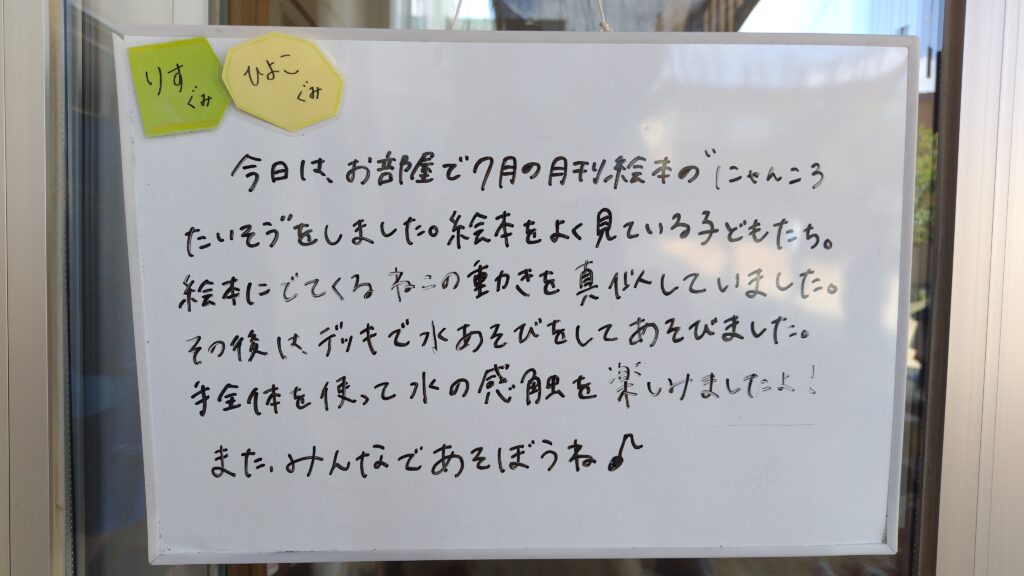 りす
ぐみ
ひよこ
ぐみ
今日は、お部屋で7月の月刊絵本の"にゃんころ
たいそう"をしました。絵本をよく見ている子どもたち。
絵本にでてくるねこの動きを真似していました。
その後は、デッキで水あそびをしてあそびました。
手全体を使って水の感触を楽しみましたよ！
また、みんなであそぼうね♪